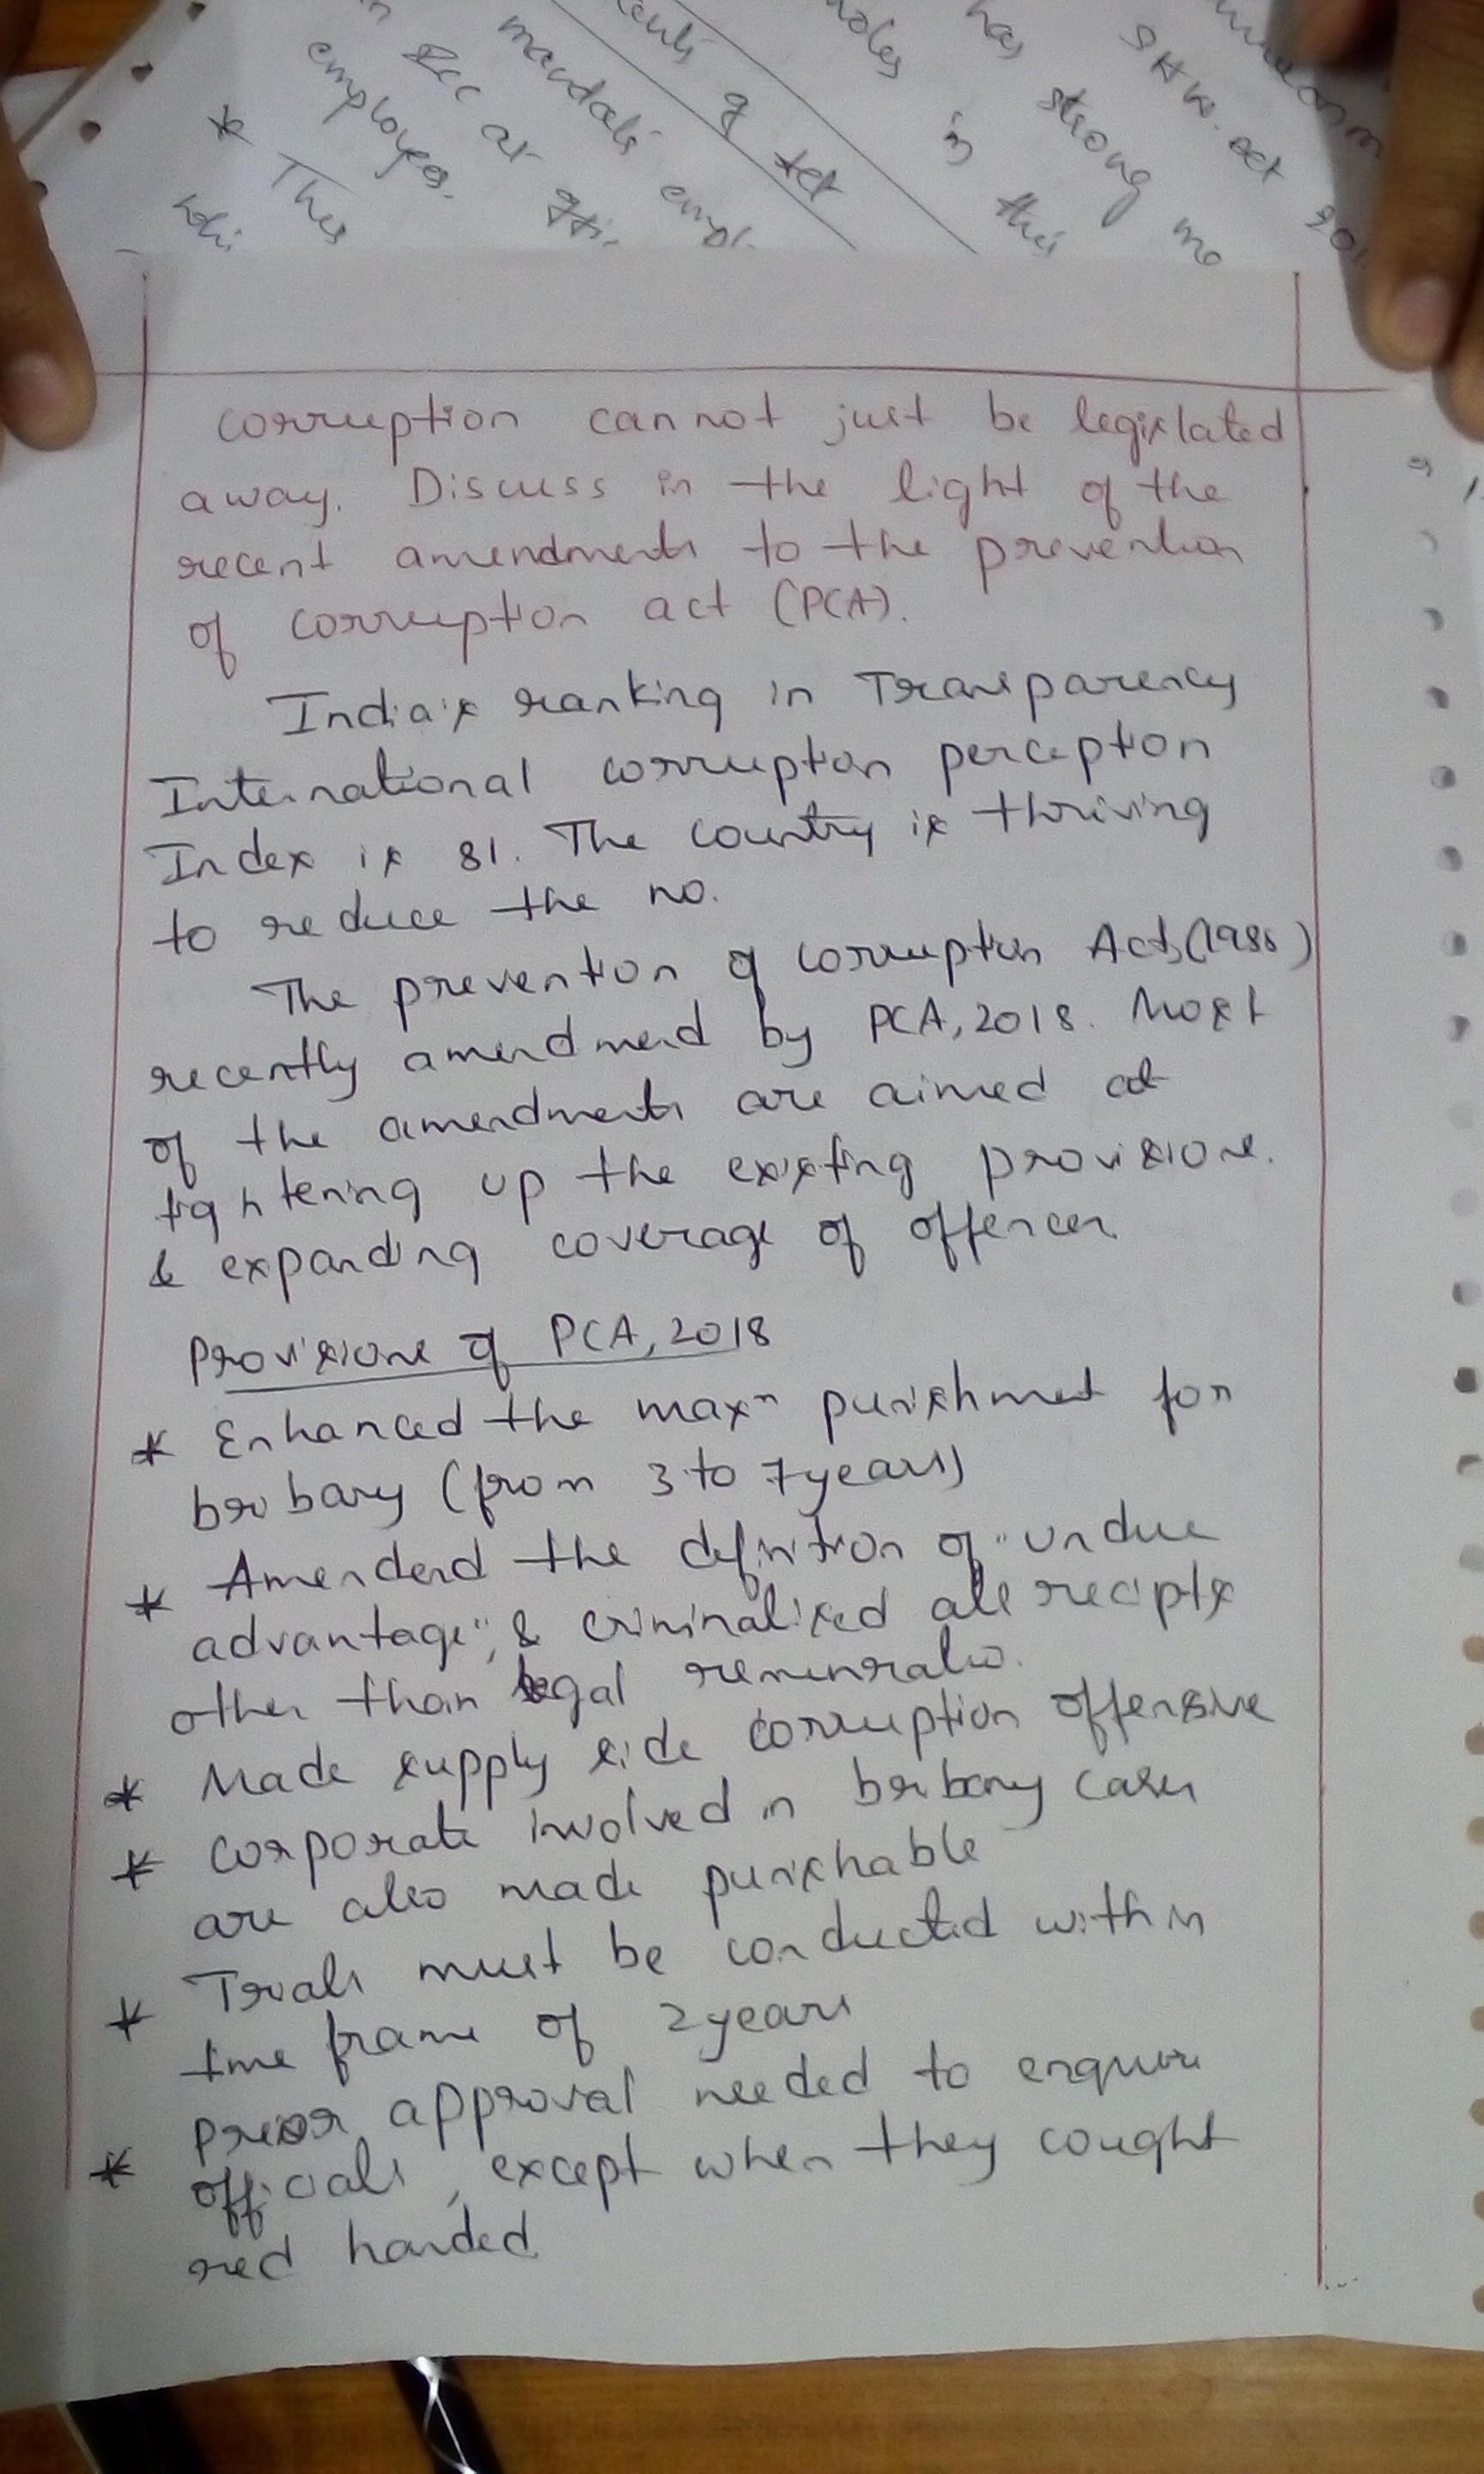 employes.
* This
mandate empl
g tet
in this
has strong me
SHW. act 201
corruption cannot just be legislated
away. Discuss in the light of the
recent amendments to the prevention
of corruption act (PCA).
India's ranking in Transparency
International corruption perception
Index is 81. The country is thriving
to reduce the no.
The prevention of corruption Act, (1988)
recently amendmend by PCA, 2018. Most
of the amendments are aimed at
tightening up the existing provisions.
& expanding coverage of offences
Provisions of PCA, 2018
* Enhanced the maxm punishment for
bribary (from 3 to 7 years)
* Amendend the definition of "undue
advantage", & criminalised all recipts
other than legal remunratio.
* Made supply side corruption offensive
* Corporate involved in bribary cases
are also made punishable
* Trials must be conducted within
time frame of 2 years
* prior approval needed to enquire
officials, except when they cought
red handed